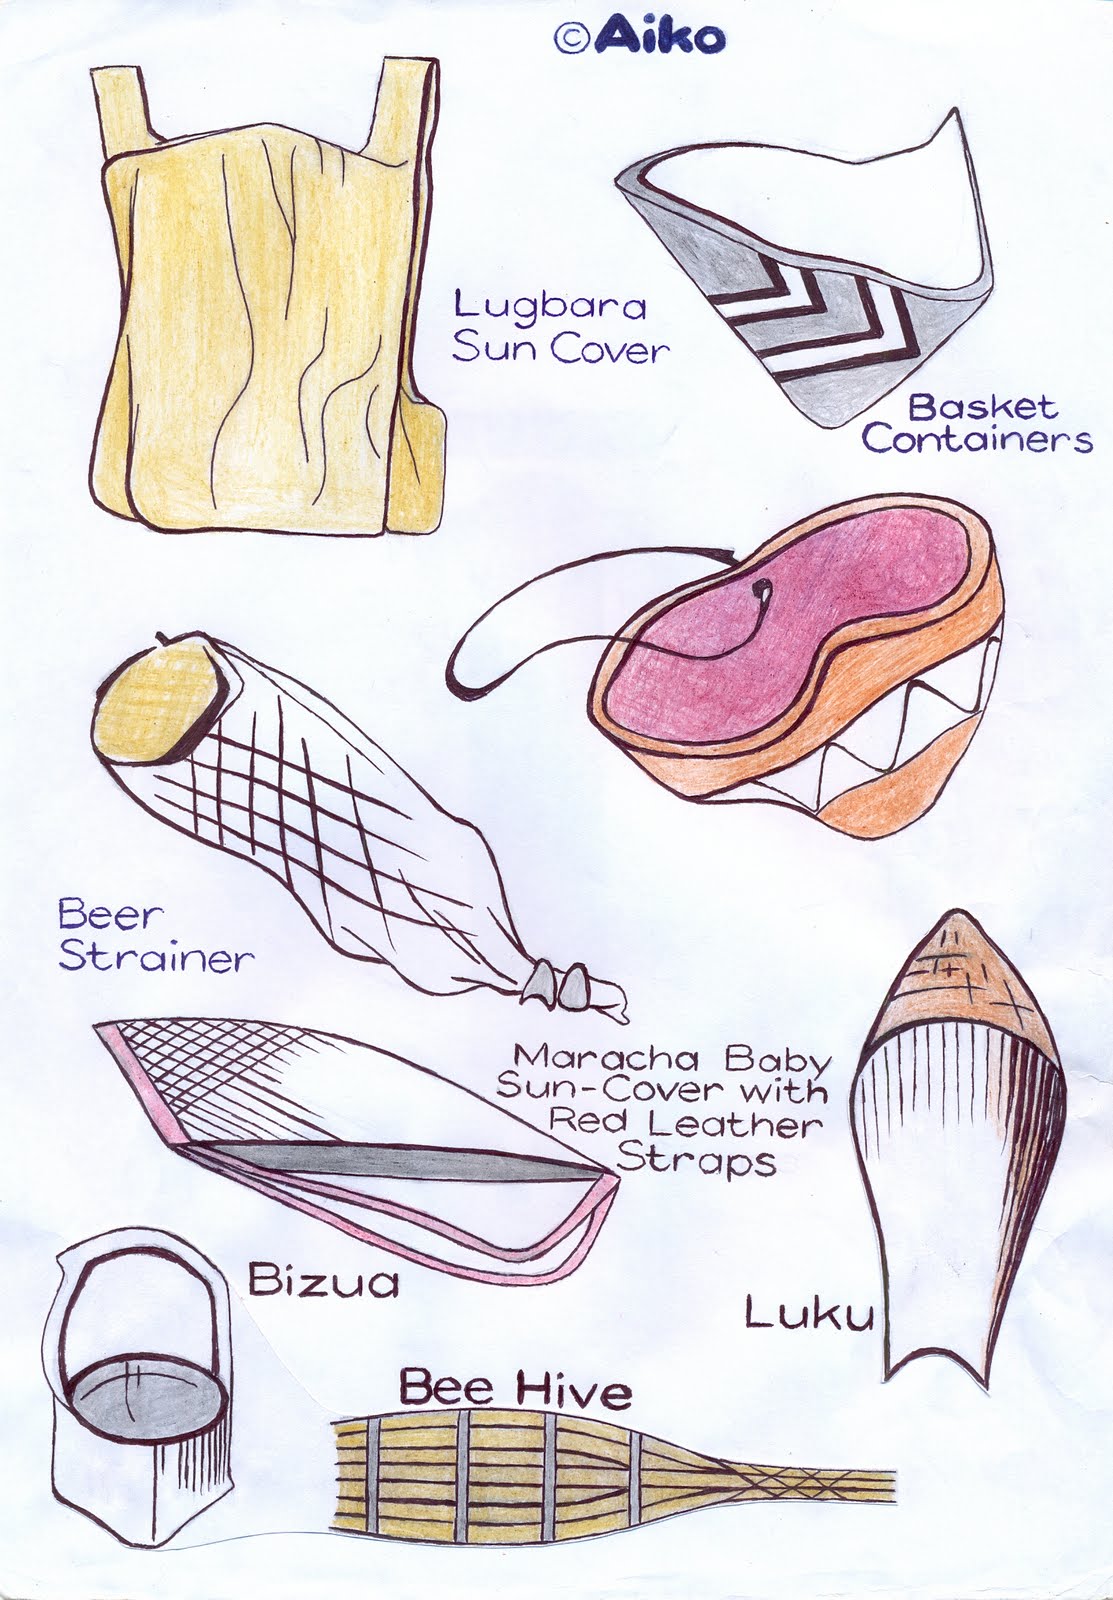 ©Aiko
Lugbara
Sun Cover
Basket
Containers
Beer
Strainer
Maracha Baby
Sun-Cover with
Red Leather
Straps
Bizua
Luku
Bee Hive